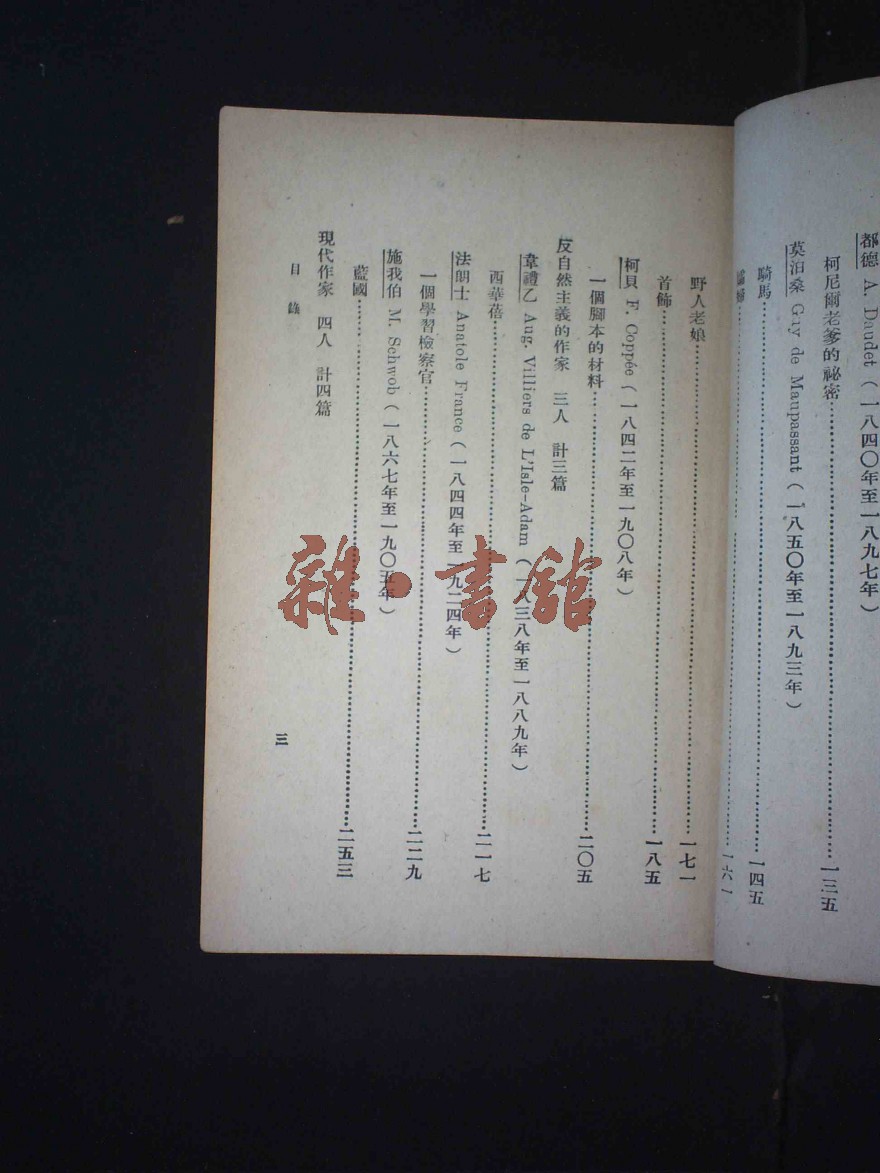 都德 A. Daudet（一八四〇年至一八九七年）
柯尼爾老爹的祕密……一三五
莫泊桑 Guy de Maupassant（一八五〇年至一八九三年）
騎馬……一四五
……一六一
野人老娘……一七一
首飾……一八五
柯貝 F. Coppée（一八四二年至一九〇八年）
一個腳本的材料……二〇五
反自然主義的作家 三人 計三篇
韋禮乙 Aug. Villiers de L'Isle-Adam（一八三八年至一八八九年）
西華蓓……二一七
法朗士 Anatole France（一八四四年至一九二四年）
一個學習檢察官……二二九
施我伯 M. Schwob（一八六七年至一九〇五年）
藍國……二五三
現代作家 四人 計四篇
目錄
三
雜·書館